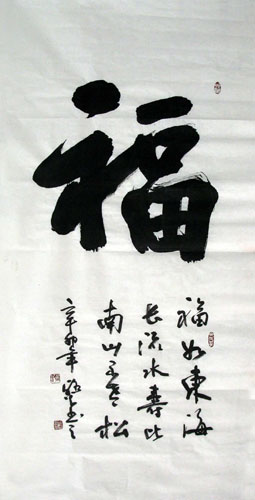 福
福如東海
長流水壽比
南山不老松
辛卯年